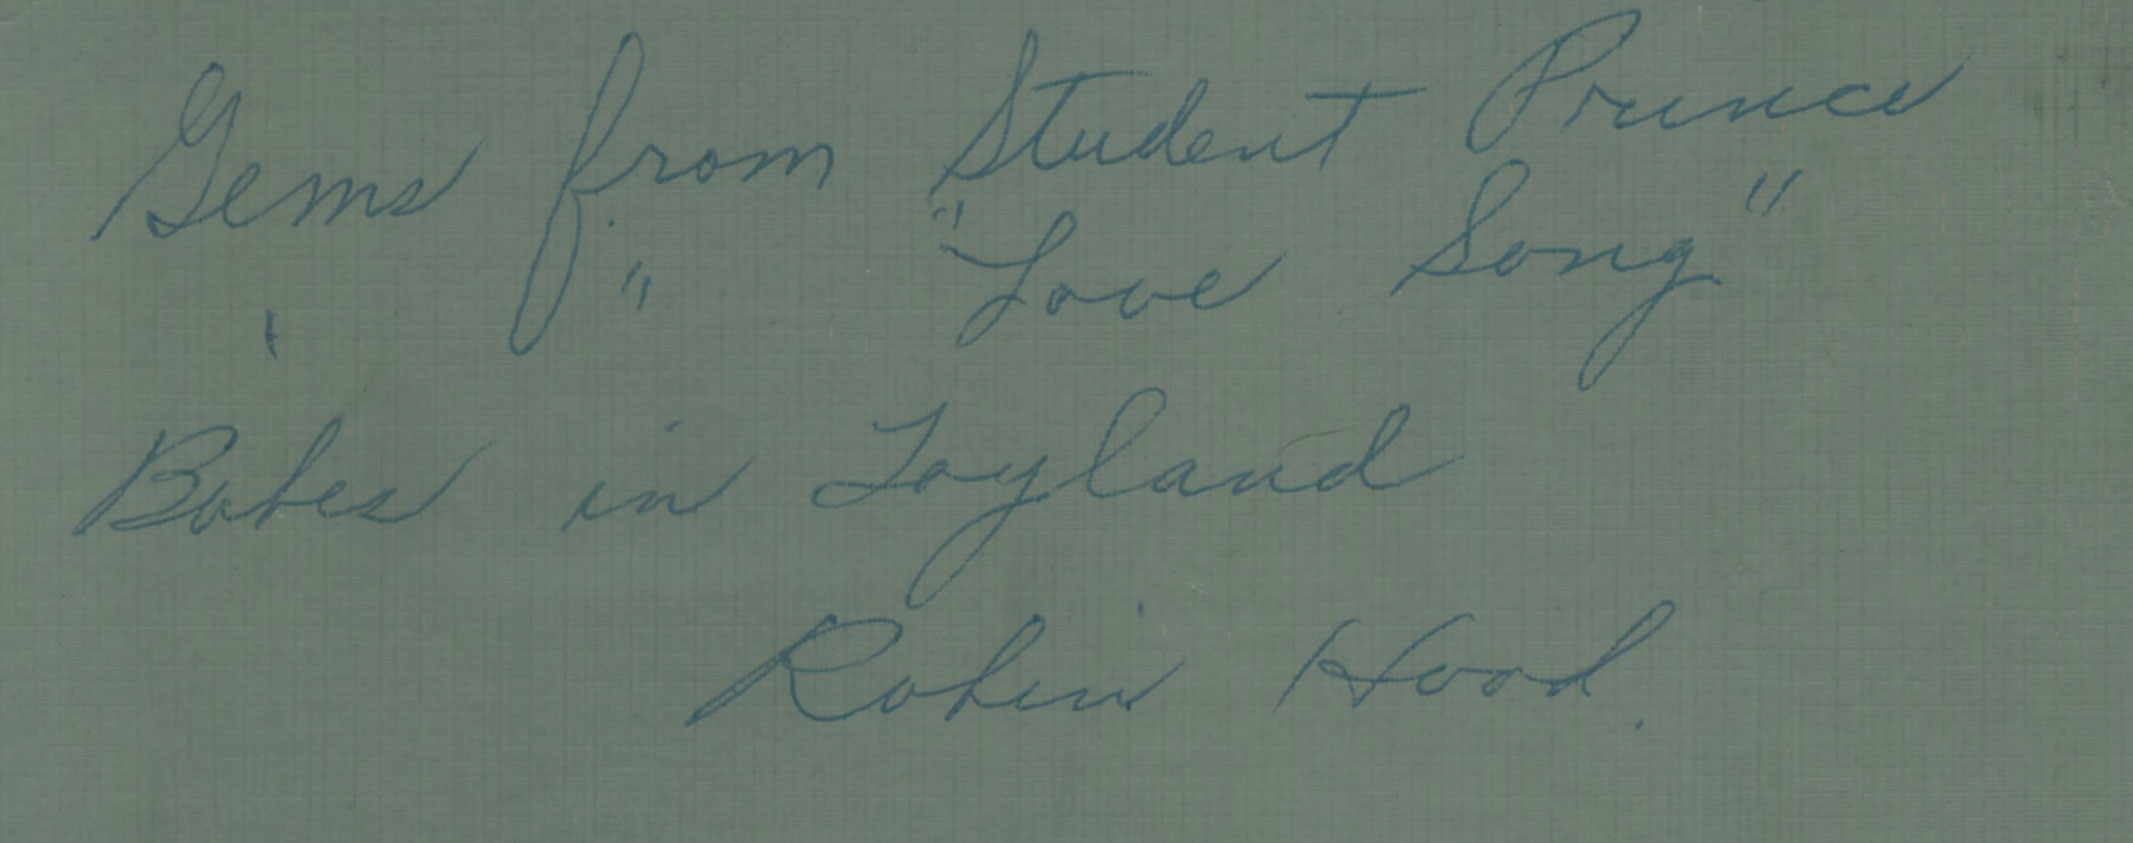 Gems from Student Prince
' " "Love Song"
Babes in Toyland
Robin Hood.